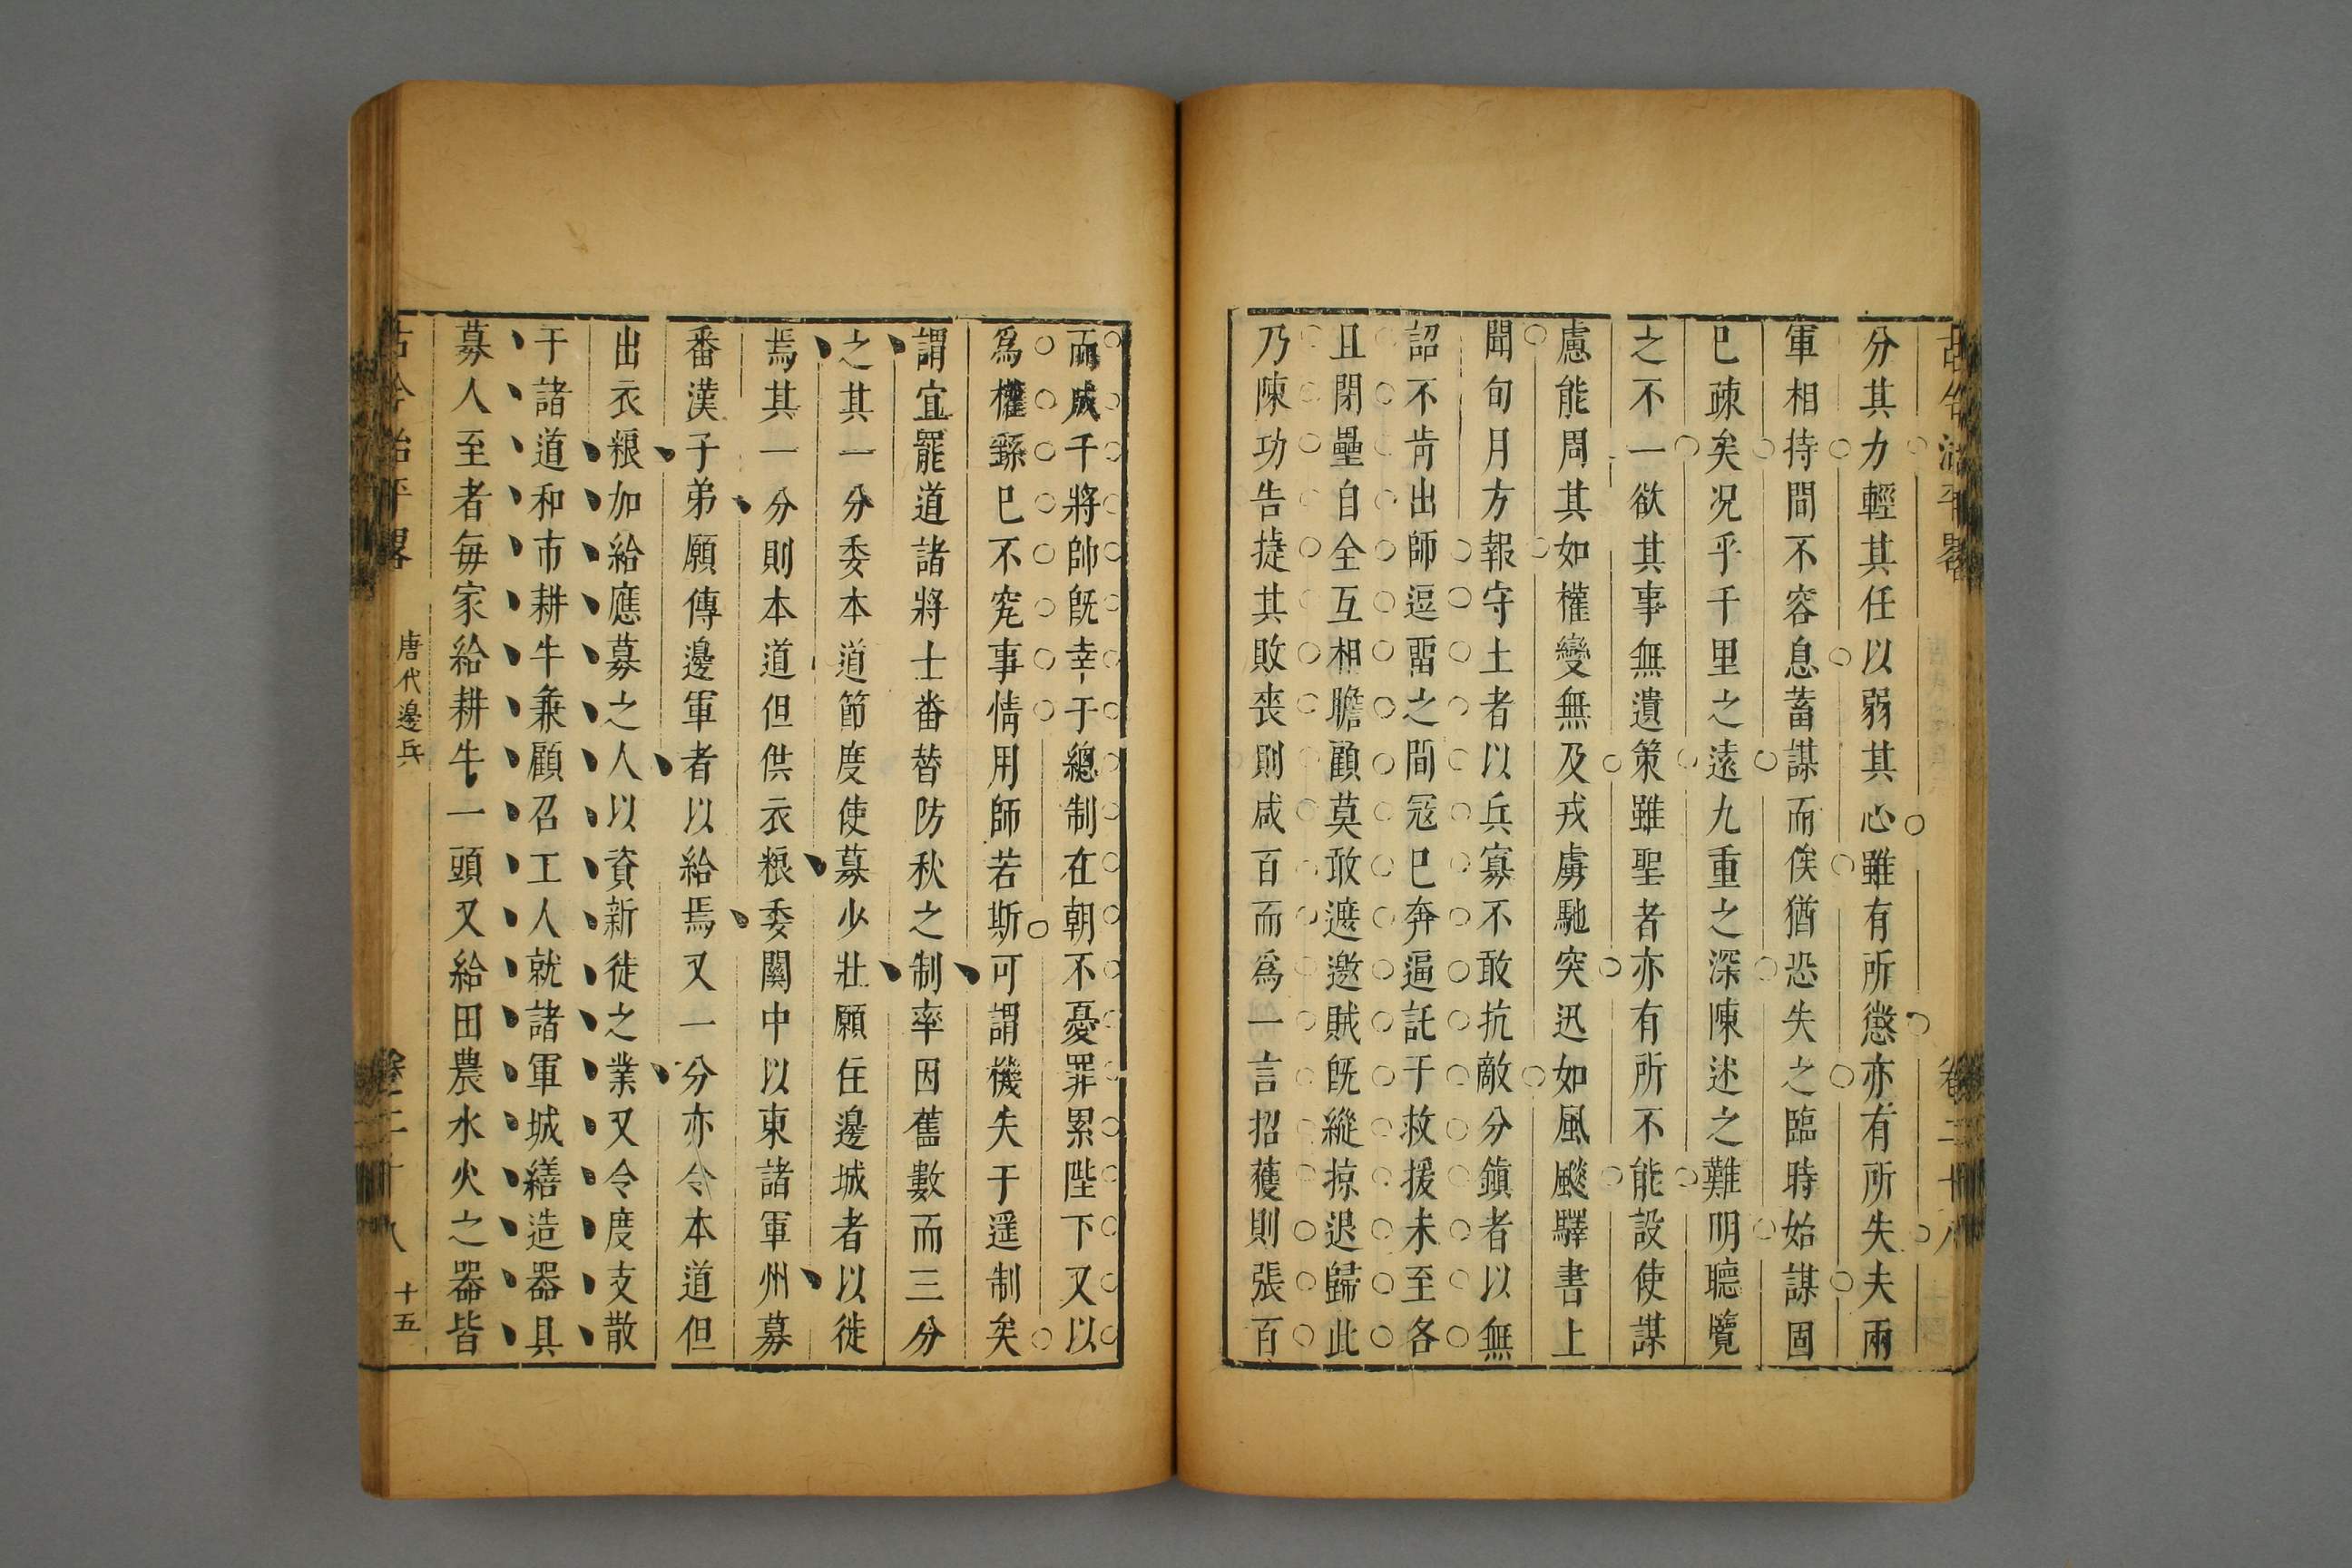 古今治平畧 卷二十八
分其力輕其任以弱其心雖有所懲亦有所失夫兩
軍相持間不容息蓄謀而俟猶恐失之臨時始謀固
已疎矣况乎千里之遠九重之深陳述之難明聽覽
之不一欲其事無遺策雖聖者亦有所不能設使謀
慮能周其如權變無及戎虜馳突迅如風飈驛書上
聞旬月方報守土者以兵寡不敢抗敵分鎮者以無
詔不肯出師逗畱之間寇已奔逼託于救援未至各
且閉壘自全互相瞻顧莫敢遮邀賊旣縱掠退歸此
乃陳功告捷其敗丧則咸百而爲一言招獲則張百
而成千將帥旣幸于總制在朝不憂罪累陛下又以
爲權繇已不究事情用師若斯可謂機失于遥制矣
謂宜罷道諸將士番替防秋之制率因舊數而三分
之其一分委本道節度使募少壯願住邊城者以徙
焉其一分則本道但供衣粮委關中以東諸軍州募
番漢子弟願傳邊軍者以給焉又一分亦令本道但
出衣粮加給應募之人以資新徙之業又令度支散
于諸道和市耕牛兼顧召工人就諸軍城繕造器具
募人至者每家給耕牛一頭又給田農水火之器皆
古今治平畧 唐代邊兵 卷二十八 十五